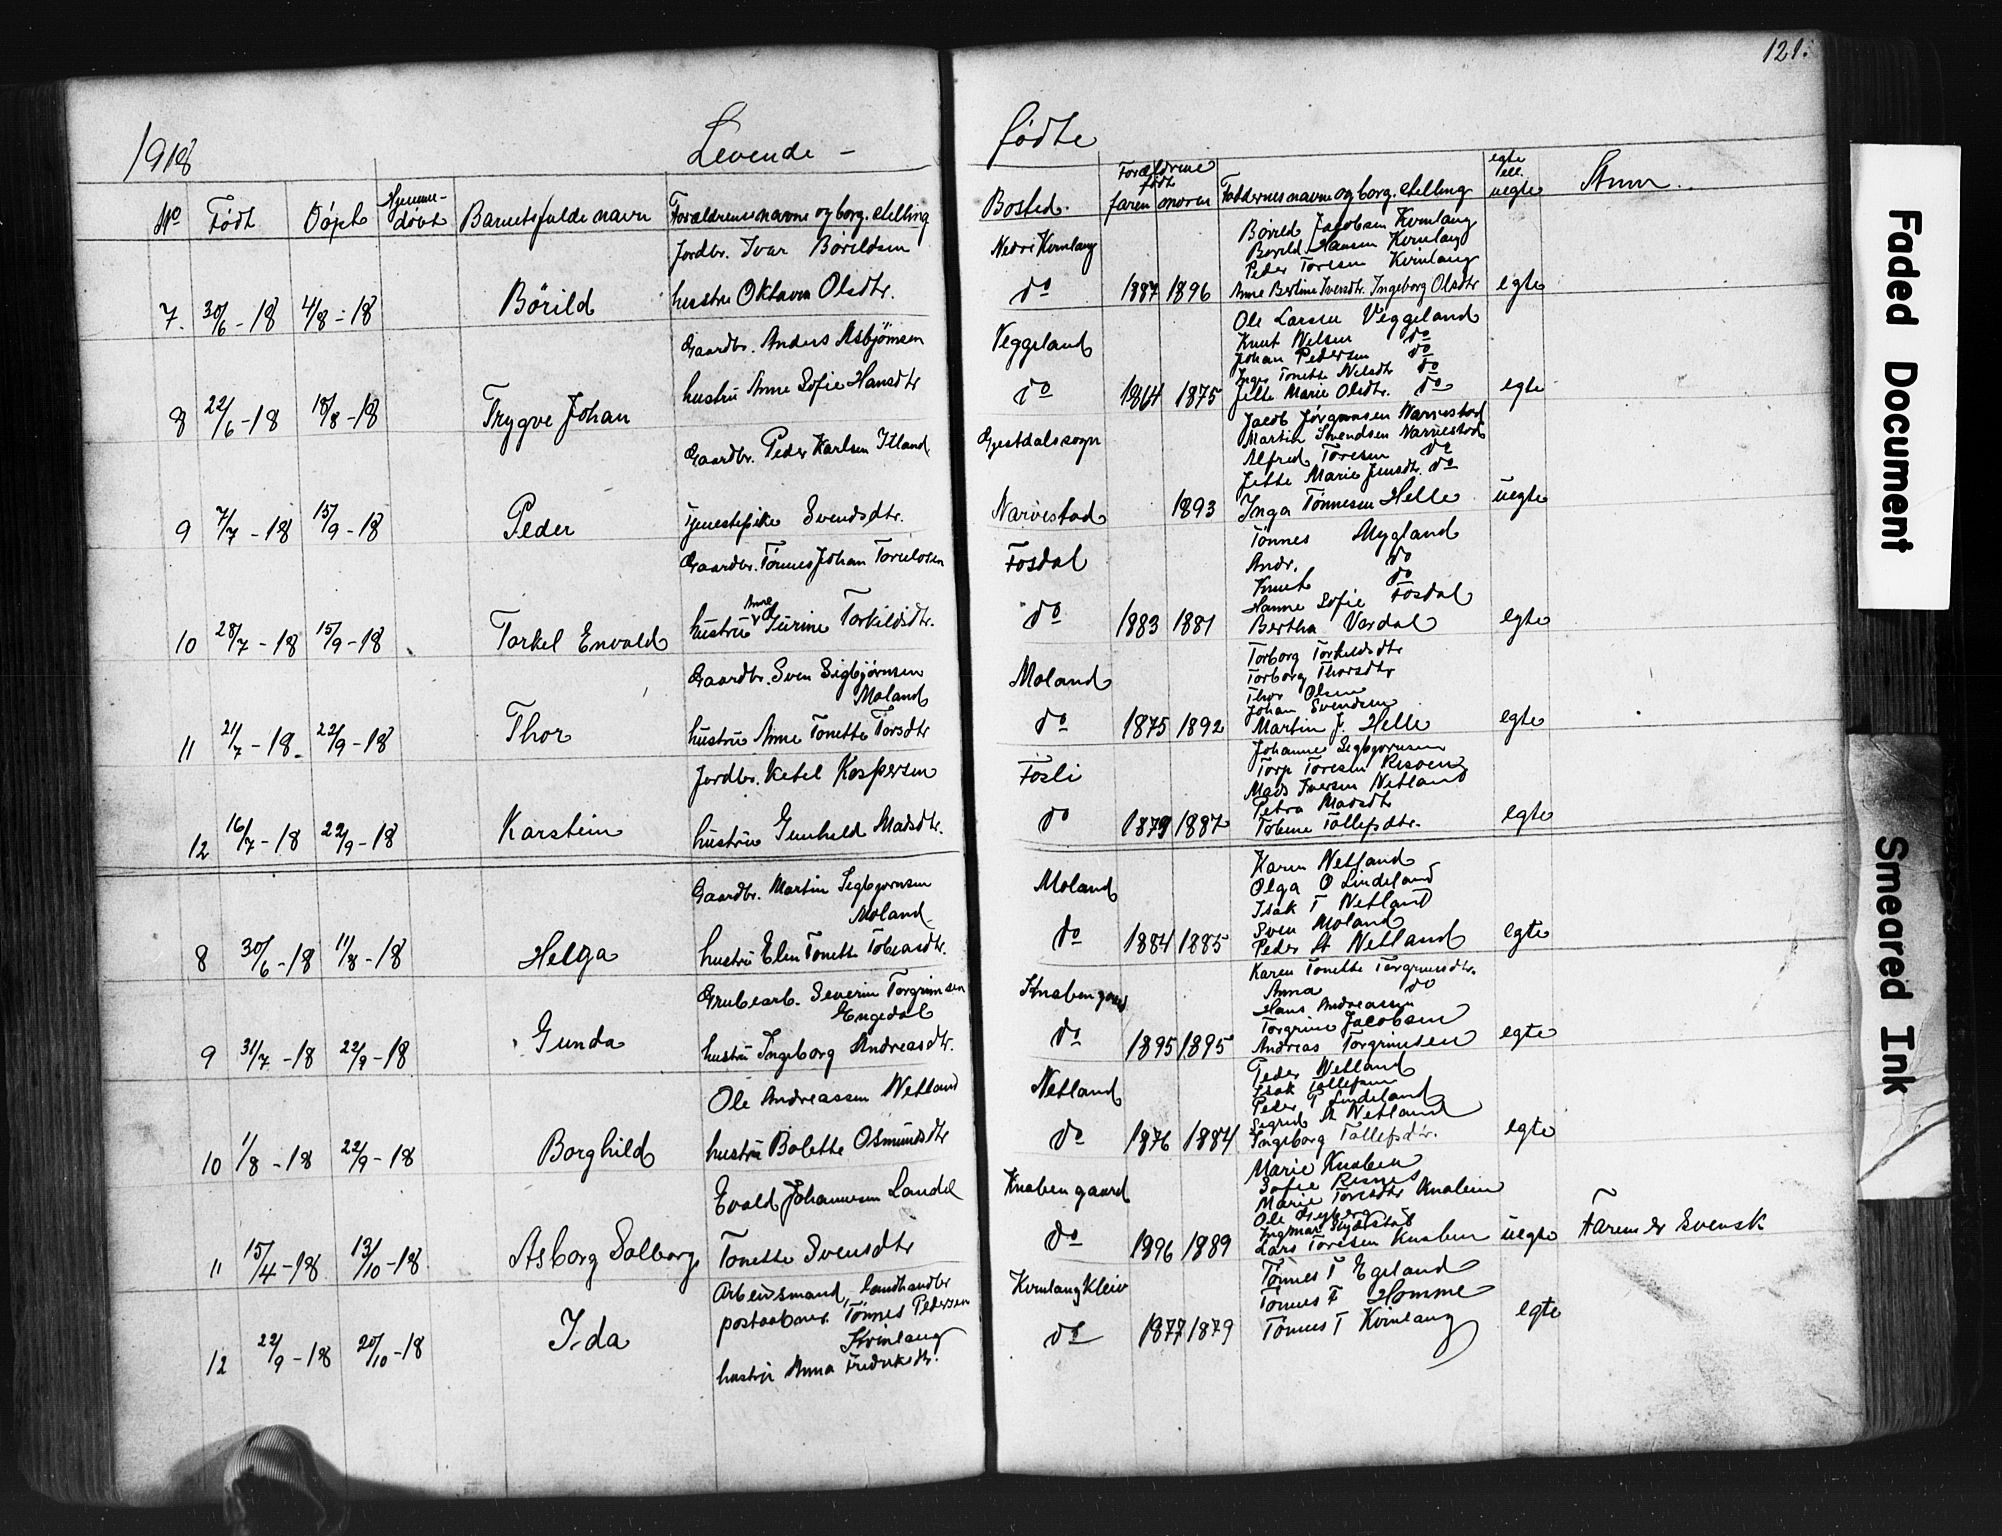 121.
1918 Levende – fødte
No Født Døpt Hjemmedøbt Barnets fulde navn Forældrenes navne og borg. stilling Bosted. Forældrene født faren moren Faddernes navne og borg. stilling egte ell. uegte Anm.
Jordbr. Ivar Börildsen Nedre Kvinlaug Börild Jacobsen Kvinlaug
Börild Hansen Kvinlaug
Peder Toresen Kvinlaug
7. 30/6-18 4/8-18 Börild hustru Oktavia Olsdtr. do 1887 1896 Anne Bertine Iversdtr. Ingeborg Olsdtr egte
Gaardbr. Anders Asbjörnsen Veggeland Ole Larsen Veggeland
Knut Nelsen do
Johan Pedersen do
Inger Tonette Nilsdtr do
8 22/6-18 18/8-18 Trygve Johan hustru Anne Sofie Hansdtr do 1864 1875 Jette Marie Olsdtr. do egte
Gaardbr. Peder Karlsen Itland Gjestdalssogn Jacob Jörgensen Narvestad
Martin Svendsen Narvestad
Alfred Toresen do
Jette Marie Jensdtr. do
9 7/7-18 15/9-18 Peder Tjenestepike Svendsdtr. Narvestad 1893 Inga Tönnesen Helle uegte
Gaardbr. Tönnes Johan Torkelsen Fosdal Tönnes Mygland
Andr. do
Knut do
Hanne Sofie Fosdal
10 28/7-18 15/9-18 Torkel Envald hustru Anne Turine Torkildsdtr. do 1883 1881 Bertha Vordal egte
Gaardbr. Sven Sigbjørnsen Moland Moland Torborg Torkeldsdtr
Torborg Thorsdtr
Thor Olsen
Johan Svendsen
11 21/7-18. 22/9-18 Thor hustru Anne Tonette Torsdtr do 1875 1892 Martin J. Helle egte
Jordbr. Ketel Kaspersen Fosli Johannes Segbjornsen
Torp Toresen Risoen
Mads Iversen Netland
Petra Madsdtr
12 16/7-18 22/9-18 Karstein hustru Gunhild Madsdtr. do 1879 1887 Tobine Tollefsdtr. egte
Gaardbr. Martin Segbjornsen Moland Moland Karen Netland
Olga O Lindeland
Isak T Netland
Sven Moland
8 30/6-18 11/8-18 Helga hustru Elen Tonette Tobiasdtr. do 1884 1885 Peder A Netland egte
Grubearb. Severin Torgrimsen Engedal Knabengaard Karen Tonette Torgrimsdtr.
Anna do
Hans Andreassen
Torgrim Jacobsen
9 31/7-18 22/9-18 Gunda hustru Ingeborg Andreasdtr. do 1895 1895 Andreas Torgrimsen egte
Ole Andreassen Netland Netland Peder Netland
Isak Tollefsen
Peder T Lindeland
Sigrid A Netland
10 1/8-18 22/9-18 Borghild hustru Bolette Osmundsdtr do 1876 1884 Ingeborg Tollefsdtr. egte
Evald Johannesen Landel Knabengaard Marie Knaben
Sofie Risnes
Marie Toresdtr Knaben
11 15/4-18 13/10-18. Asborg Solborg Tonette Svensdtr do 1896 1889 Lars Toresen Knaben uegte Faren er Svensk
Arbeidsmand, landhandler Kvinlaug Kleiv Tönnes T Egeland
postaabner Tönnes Pedersen Kvinlaug Tönnes F Homme
12 22/9-18 20/10-18 Ida hustru Anna Fredriksdtr. do 1877 1879 Tönnes T Kvinlaug egte
Faded Document
Smeared Ink